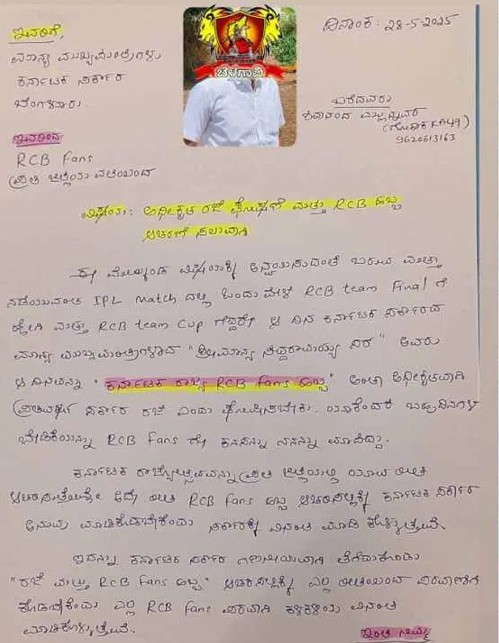 ಇವರಿಗೆ,
ದಿನಾಂಕ: 28-5-2025
ಮಾನ್ಯ ಮುಖ್ಯಮಂತ್ರಿಗಳು
ಕರ್ನಾಟಕ ಸರ್ಕಾರ
ಬೆಂಗಳೂರು.
ಬರೆದವರು
ಶಿವಾನಂದ ಮಲ್ಲಣ್ಣವರ
(ಗೋಕಾಕ KA49)
9620613163
ಇವರಿಂದ
RCB Fans
ಪ್ರತಿ ಜಿಲ್ಲೆಯ ವತಿಯಿಂದ
ವಿಷಯ: ಅಧೀಕೃತ ರಜೆ ಘೋಷಣೆ ಮತ್ತು RCB ಹಬ್ಬ
ಆಚರಣೆ ಸಲುವಾಗಿ
ಈ ಮೇಲ್ಕಂಡ ವಿಷಯಕ್ಕೆ ಅನ್ವಯಿಸುವಂತೆ ಬರುವ ಮತ್ತು
ನಡೆಯುವಂತ IPL Match ದಲ್ಲಿ ಒಂದು ವೇಳೆ RCB team Final ಗೆ
ಹೋಗಿ ಮತ್ತು RCB team Cup ಗೆದ್ದರೇ ಆ ದಿನ ಕರ್ನಾಟಕ ಸರ್ಕಾರದ
ಮಾನ್ಯ ಮುಖ್ಯಮಂತ್ರಿಗಳಾದ "ಶ್ರೀ ಮಾನ್ಯ ಸಿದ್ದರಾಮಯ್ಯ ಸರ" ಅವರು
ಆ ದಿನವನ್ನು "ಕರ್ನಾಟಕ ರಾಜ್ಯ RCB fans ಹಬ್ಬ" ಅಂತಾ ಅಧೀಕೃತವಾಗಿ
ಪ್ರತಿವರ್ಷ ಸರ್ಕಾರ ರಜೆ ಎಂದು ಘೋಷಿಸಬೇಕು. ಯಾಕೆಂದರೆ ಬಹುದಿನಗಳ
ಬೇಡಿಕೆಯನ್ನು RCB Fans ಗೆ ಕನಸನ್ನು ನನಸನ್ನು ಮಾಡಿದ್ದು.
ಕರ್ನಾಟಕ ರಾಜ್ಯೋತ್ಸವವನ್ನು ಪ್ರತಿ ಜಿಲ್ಲೆಯಲ್ಲಿ ಯಾವ ರೀತಿ
ಆಚರಿಸುತ್ತೇವೋ ಅದೇ ರೀತಿ RCB Fans ಹಬ್ಬ ಆಚರಿಸಲಿಕ್ಕೆ ಕರ್ನಾಟಕ ಸರ್ಕಾರ
ಅನುವು ಮಾಡಿಕೊಡಬೇಕೆಂದು ಸರ್ಕಾರಕ್ಕೆ ವಿನಂತಿ ಮಾಡಿ ಕೊಳ್ಳುತ್ತೇವೆ.
ಇದನ್ನು ಕರ್ನಾಟಕ ಸರ್ಕಾರ ಗಂಭೀರವಾಗಿ ತೆಗೆದುಕೊಂಡು
"ರಜೆ ಮತ್ತು RCB Fans ಹಬ್ಬ" ಆಚರಿಸಲಿಕ್ಕೆ ಎಲ್ಲ ರೀತಿಯಿಂದ ಪರವಾಣಿಗಿ
ಕೊಡಬೇಕೆಂದು ಎಲ್ಲ RCB Fans ಪರವಾಗಿ ಕಳಕಳಿಯ ವಿನಂತಿ
ಮಾಡಿಕೊಳ್ಳುತ್ತೇವೆ.
ಇಂತಿ ನಿಮ್ಮ